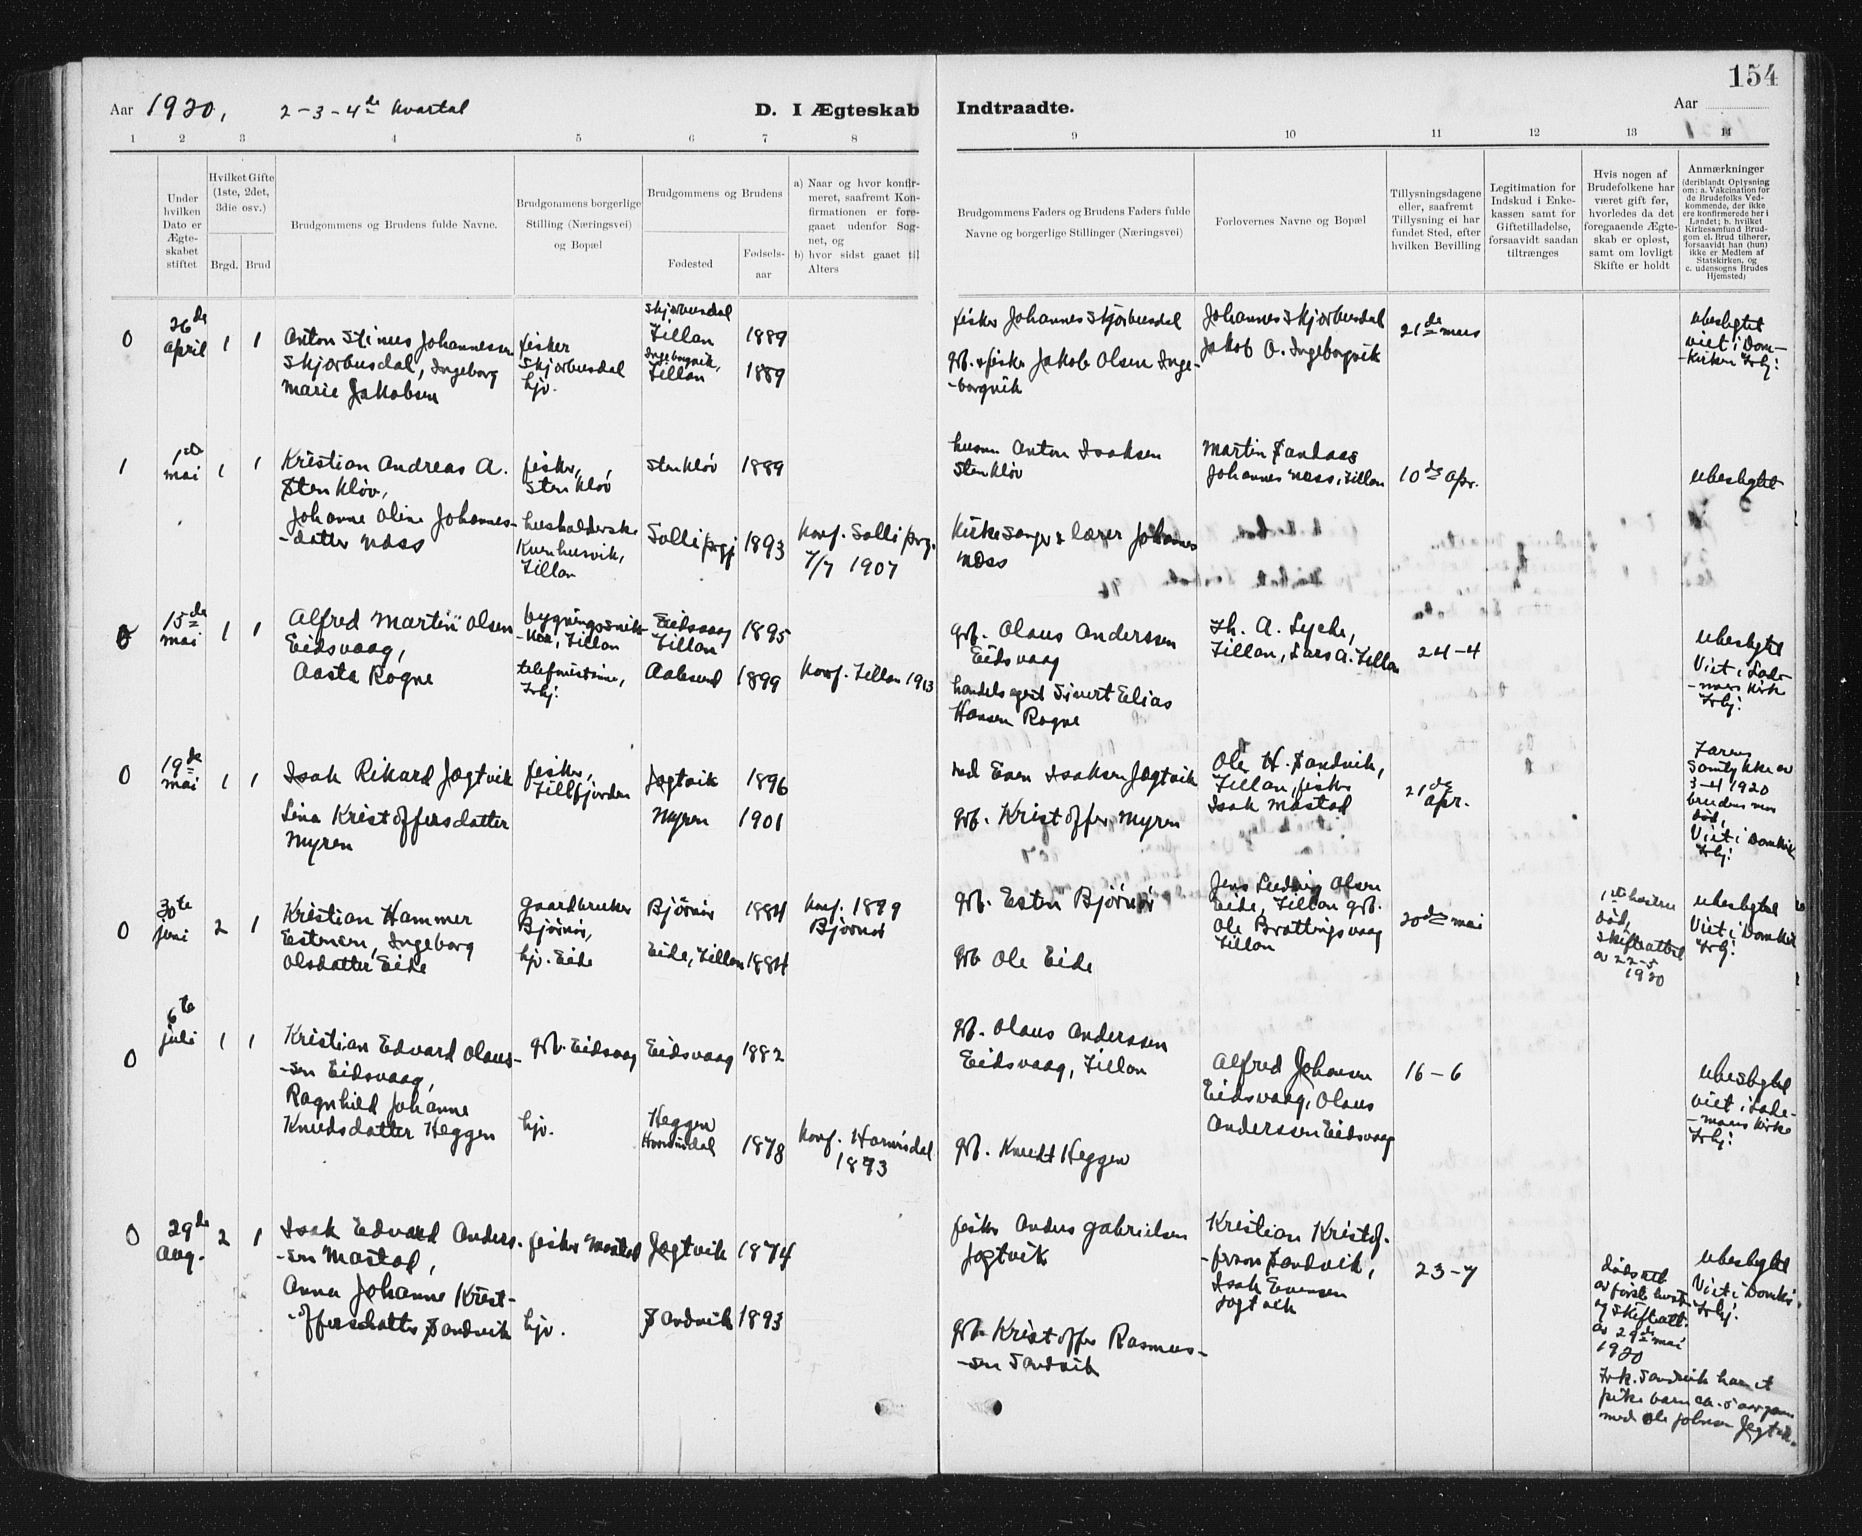 154
Aar 1920, 2-3-4de kvartal D. I Ægteskab Indtraadte. Aar
1 2 3 4 5 6 7 8 9 10 11 12 13 14
Under hvilken Dato er Ægte-skabet stiftet
Hvilket Gifte (1ste, 2det, 3die osv.)
Brgd. Brud
Brudgommens og Brudens fulde Navne.
Brudgommens borgerlige Stilling (Næringsvei) og Bopæl
Brudgommens og Brudens
Fødested
Fødsels-aar
a) Naar og hvor konfir-meret, saafremt Kon-firmationen er fore-gaaet udenfor Sog-net, og
b) hvor sidst gaaet til Alters
Brudgommens Faders og Brudens Faders fulde Navne og borgerlige Stillinger (Næringsvei)
Forlovernes Navne og Bopæl
Tillysningsdagene eller, saafremt Tillysning ei har fundet Sted, efter hvilken Bevilling
Legitimation for Indskud i Enke-kassen samt for Giftetilladelse, forsaavidt saadan tiltrænges
Hvis nogen af Brudefolkene har været gift før, hvorledes da det foregaaende Ægte-skab er opløst, samt om lovligt Skifte er holdt
Anmærkninger
(deriblandt Oplysning om: a. Vakcination for de Brudefolks Ved-kommende, der ikke ere konfirmerede her i Landet; b. hvilket Kirkesamfund Brud-gom el. Brud tilhører, forsaavidt han (hun) ikke er Medlem af Statskirken, og c. udensogns Brudes Hjemsted)
0 26de april 1 1
Anton Stinus Johannessen
Skjærbusdal, Ingeborg
Marie Jakobsen
fisker
Skjærbusdal
hjv.
Skjærbusdal
Tillan 1889
Ingeborgvik,
Tillan 1889
fisker Johannes Skjærbusdal
grb. & fisker Jakob Olsen Inge-
-borgvik
Johannes Skjærbusdal
Jakob O. Ingeborgvik
21de mars
ubeslegtet
viet i Dom-
-kirken Trhj:
1 1ste mai 1 1
Kristian Andreas A.
Stenkløv,
Johanne Oline Johannes-
-datter Næss
fisker,
Stenkløv
husholderske
Kvenhusvik,
Tillan
Stenkløv 1889
Solli prgj 1893
Konf. Solli prg.
7/7 1907
husm Anton Isaksen
Stenkløv
Kirkesanger & lærer Johannes
Næss
Martin Sandaas
Johannes Næss, Tillan
10de apr.
ubeslegtet
0 15de mai 1 1
Alfred Martin Olsen
Eidsvaag,
Aasta Rogne
bygningssnik-
-ker, Tillan
telefonistinne,
Trhj:
Eidsvaag
Tillan 1895
Aalesund 1899
Konf. Tillan 1913
grb. Olaus Anderssen
Eidsvaag
handelsagent Sivert Elias
Hansen Rogne
Th. A. Lyche,
Tillan, Lars A. Tillan
24-4
ubeslegtet
Viet i Lade-
-moens kirke
Trhj:
0 19de mai 1 1
Isak Rikard Jægtvik
Lina Kristoffersdatter
Myren
fisker,
Tillfjorden
Jægtvik 1896
Myren 1901
Even Isaksen Jægtvik
grb. Kristoffer Myren
Ole H. Sandvik,
Tillan, fisker
Isak Mastad
21de apr.
Farens
samtykke av
3-4 1920
brudens mor
død,
Viet i Domkirk
Trhj:
0 30te juni 2 1
Kristian Hammer
Estensen, Ingeborg
Olsdatter Eide
gaardbruker
Bjørnør,
hjv. Eide
Bjørnør 1884
Eide, Tillan 1884
konf. 1899
Bjørnør
grb. Esten Bjørnør
grb Ole Eide
Jens Ludvig Olsen
Eide, Tillan grb.
Ole Brattingsvaag
Tillan
20de mai
1ste hustru
død,
skifteattest
av 22-5
1920
ubeslegtet
Viet i Domkirk
Trhj:
0 6te juli 1 1
Kristian Edvard Olaus-
-sen Eidsvaag,
Ragnhild Johanne
Knudsdatter Heggen
grb. Eidsvaag
hjv.
Eidsvaag 1882
Heggen
Hornindal 1878
konf. Hornindal
1893
grb. Olaus Anderssen
Eidsvaag, Tillan
grb. Knudt Heggen
Alfred Johansen
Eidsvaag, Olaus
Anderssen Eidsvaag
16-6
ubeslegtet
viet i Lade-
-moens kirke
Trhj:
0 29de aug. 2 1
Isak Edvard Anders-
-sen Mastad,
Anna Johanne Krist-
-offersdatter Sandvik
fisker Mastad
hjv.
Jægtvik 1874
Sandvik 1893
fisker Anders Gabrielsen
Jægtvik
grb. Kristoffer Rasmus-
-sen Sandvik
Kristian Kristof-
-fersen Sandvik,
Isak Evensen
Jægtvik
23-7
dødsatt.
av første hust.
og skifteatt.
av 29de mai
1920
Frk. Sandvik har et
pike barn ca. 5 aar gam
med Ole Johnsen Jegtvik.
ubeslegtet
Viet i Domkir.
Trhj: